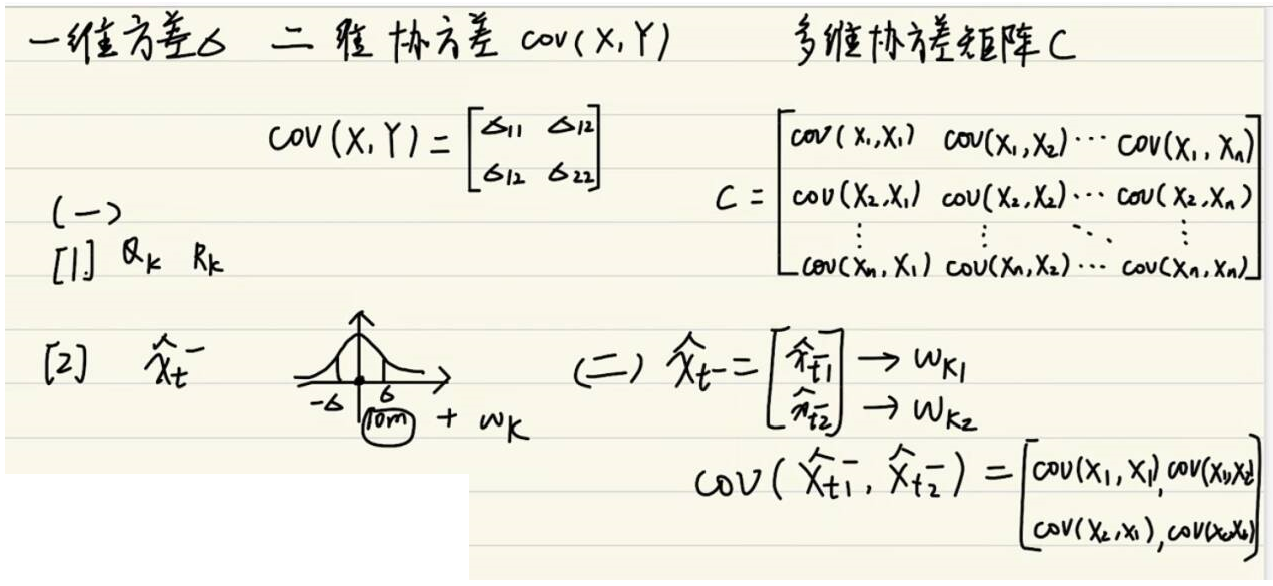 一维方差σ 二维 协方差 cov(X,Y) 多维协方差矩阵 C
cov(X,Y) = [σ11 σ12
σ12 σ22]
C = [cov(X1,X1) cov(X1,X2) ⋯ cov(X1,Xn)
cov(X2,X1) cov(X2,X2) ⋯ cov(X2,Xn)
⋮ ⋮ ⋱ ⋮
cov(Xn,X1) cov(Xn,X2) ⋯ cov(Xn,Xn)]
(一)
[1] Qk Rk
[2] x̂t⁻
-σ σ
10m + wk
(二) x̂t⁻ = [x̂t1⁻] → wk1
[x̂t2⁻] → wk2
cov(x̂t1⁻, x̂t2⁻) = [cov(x1,x1), cov(x1,x2)
cov(x2,x1), cov(x2,x2)]